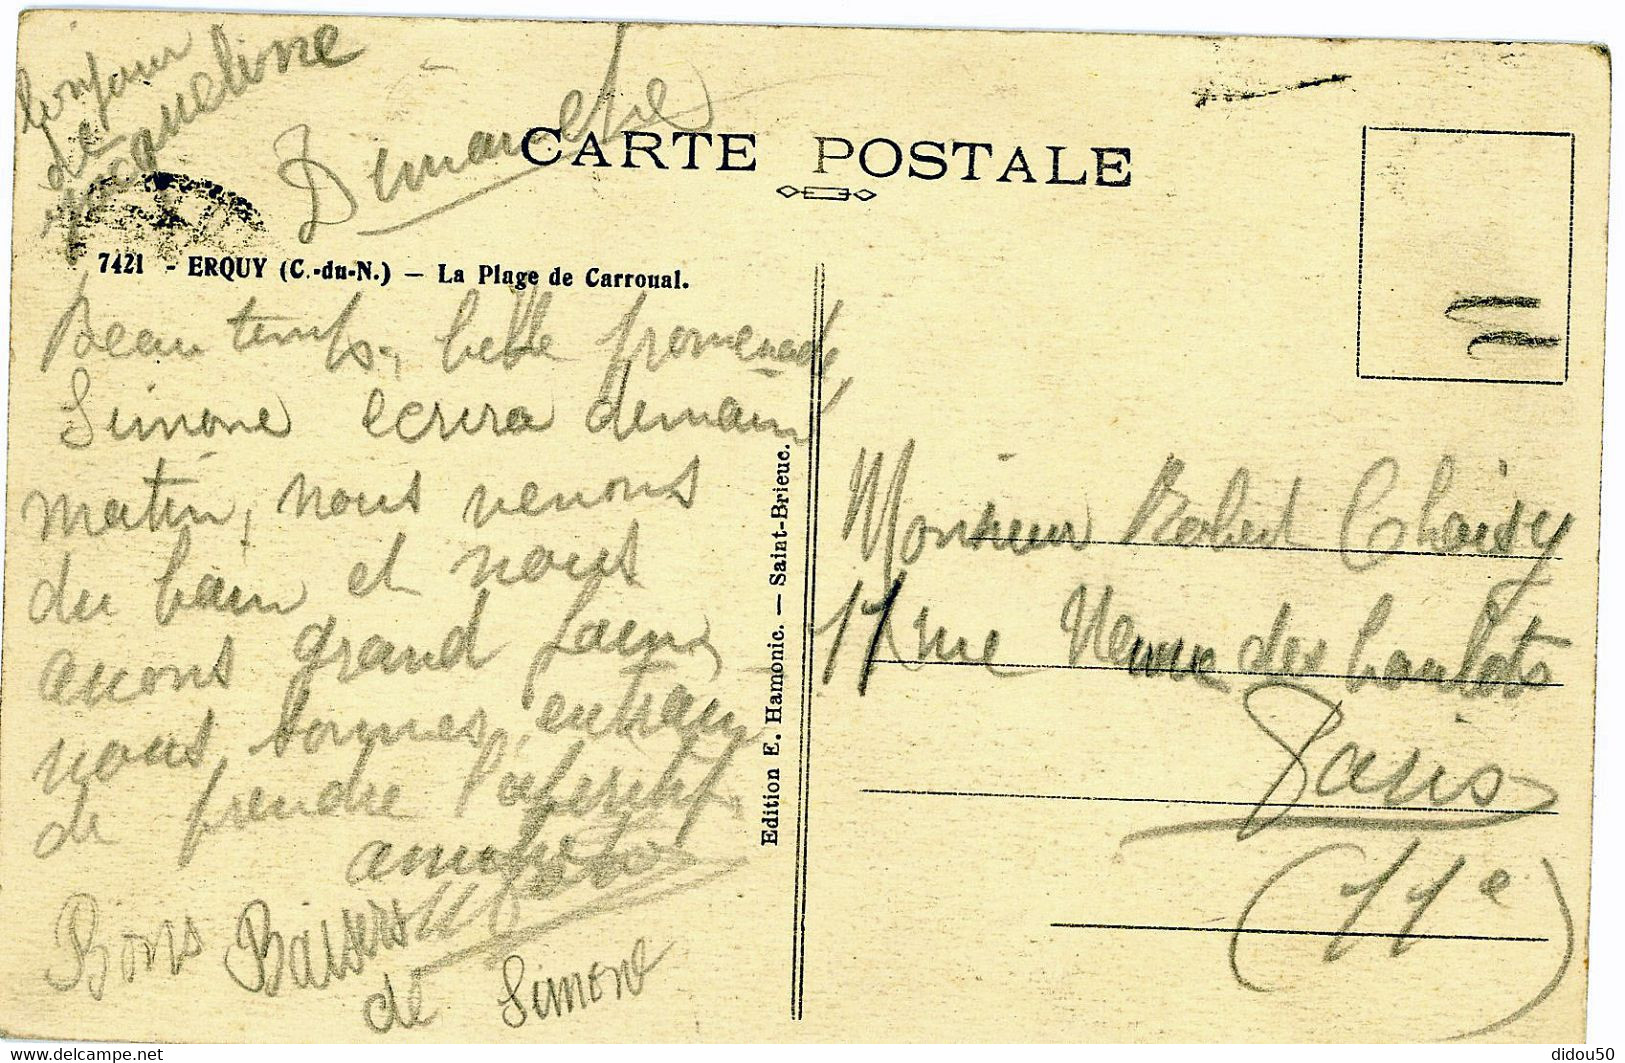 bonjour
de
Jacqueline
Dimanche
CARTE POSTALE
7421 - ERQUY (C.-du-N.) — La Plage de Carroual.
Beau temps, belle promenade,
Simone ecrira demain
matin, nous venons
du bain et nous
avons grand faim,
nous sommes entrain
de prendre l'aperitif.
Bons Baisers
de Simone
Edition E. Hamonic. — Saint-Brieuc.
Monsieur Robert Choisy
17 rue Neuve des boulets
Paris
(11e)
didou50